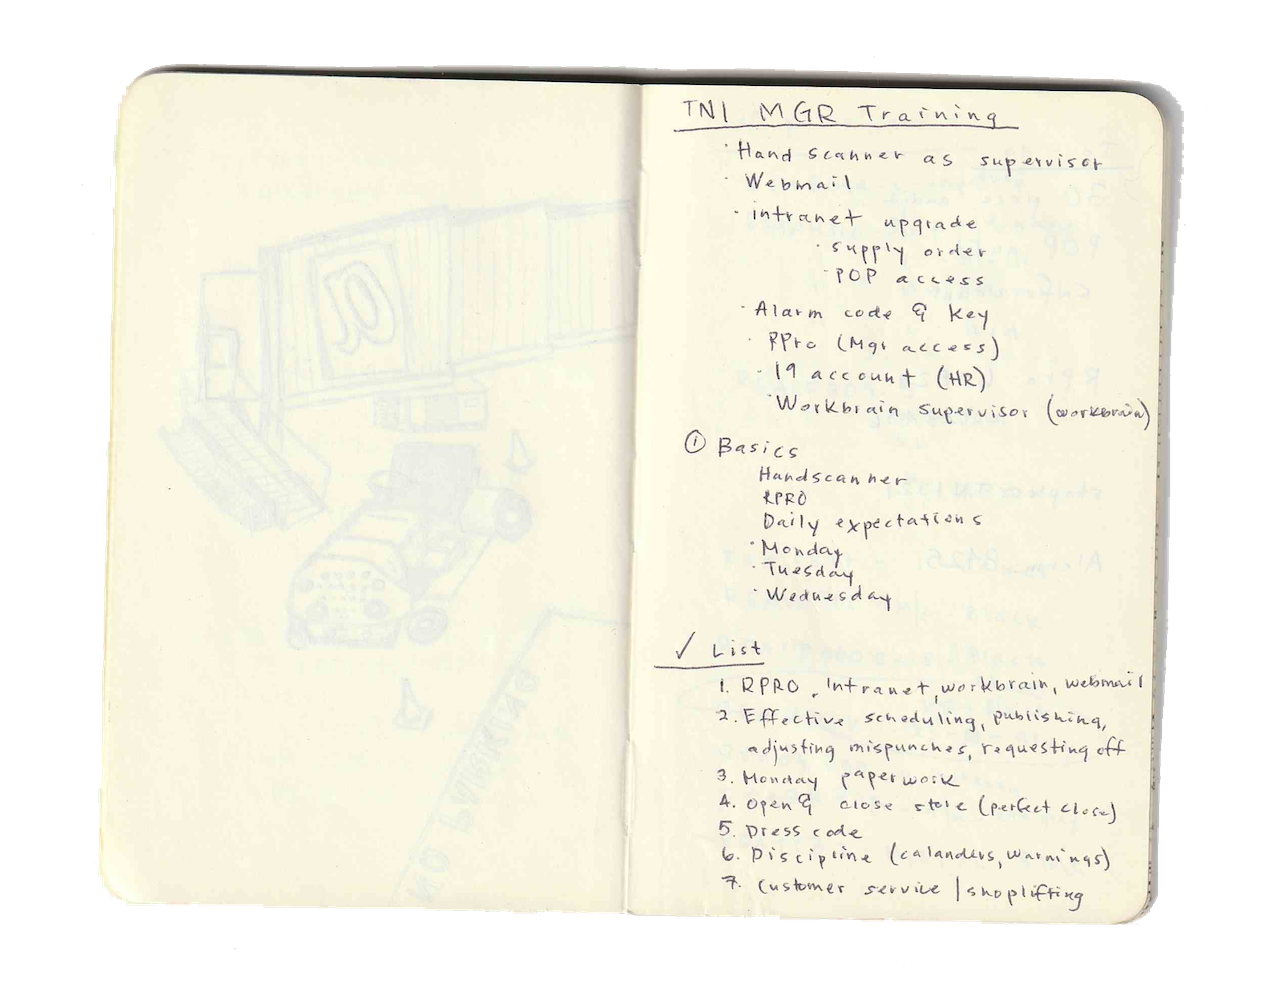 TNI MGR Training
· Hand scanner as supervisor
· Webmail
· intranet upgrade
· supply order
· POP access
· Alarm code & key
· RPro (Mgr access)
· 19 account (HR)
· Workbrain supervisor (workbrain)
① Basics
Handscanner
RPRO
Daily expectations
· Monday
· Tuesday
· Wednesday
✓ List
1. RPRO, Intranet, workbrain, webmail
2. Effective scheduling, publishing,
adjusting mispunches, requesting off
3. Monday paperwork
4. Open & close store (perfect close)
5. Dress code
6. Discipline (calanders, warnings)
7. Customer service / shoplifting
NO PARKING